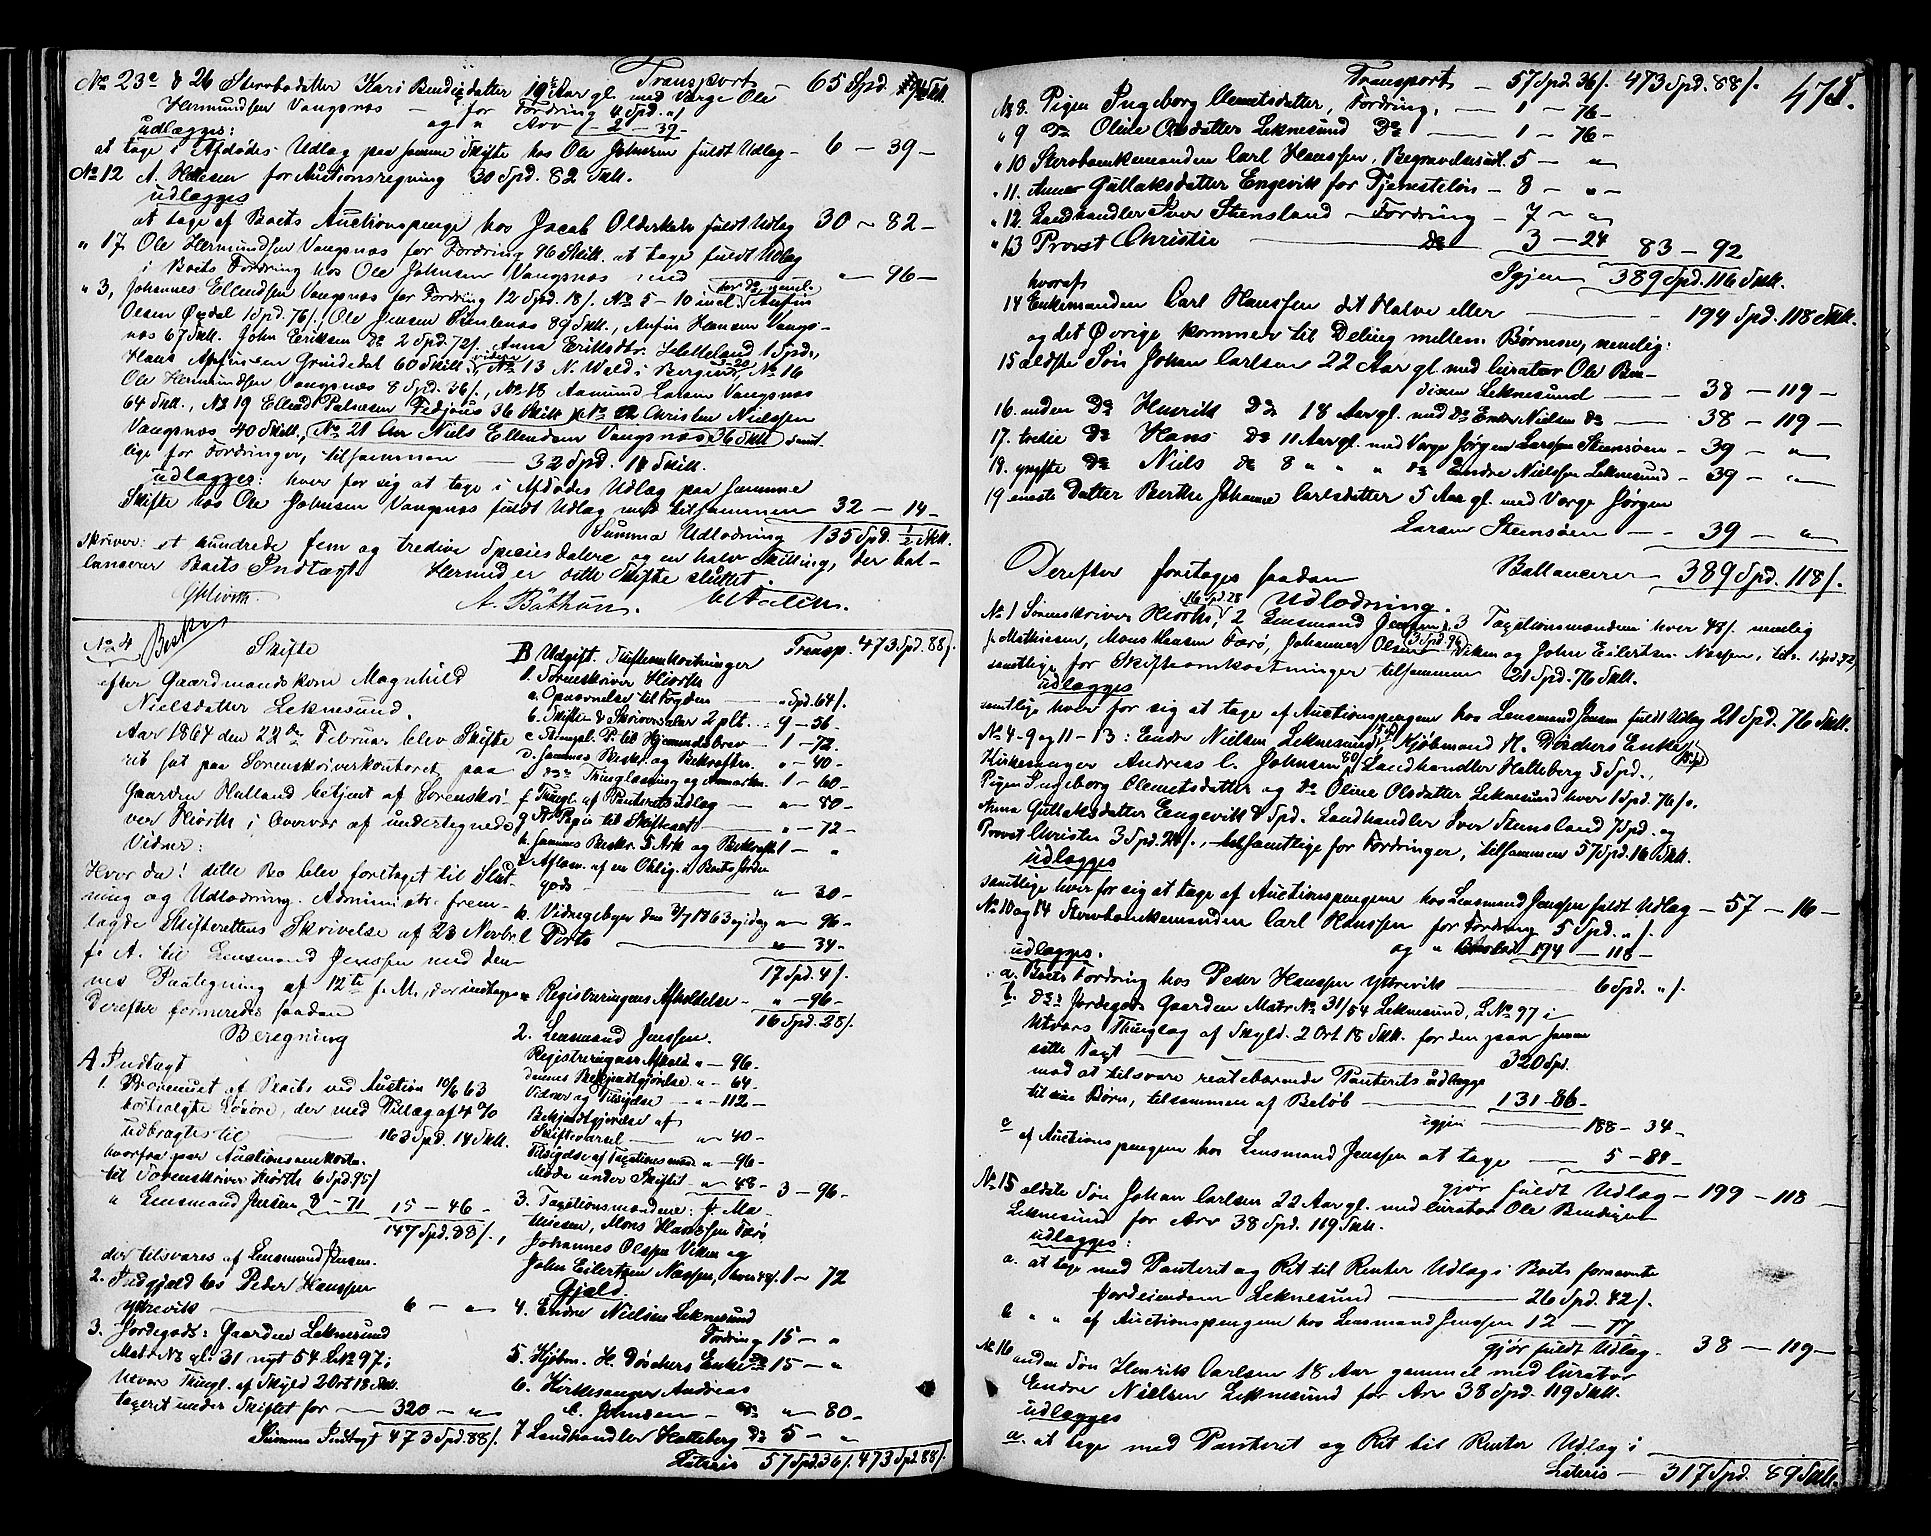 Transport — 65 Spd.
No 23 & 26 Sterbodatter Kari Bendixdatter 19 Aar gl. med Værge Ole
Hermundsen Vangsnæs — for Fordring 4 Spd. „ /
og „ Arv — 2 — 39 —
udlægges:
at tage i Afdødes Udlæg paa samme Skifte hos Ole Johnsen fuldt Udlæg — 6 — 39 —
No 12 A. for Auctionsregning 30 Spd. 82 Skill.
udlægges
at tage af Boets Auctionspenge hos Jacob fuldt Udlæg 30 — 82 —
„ 17. Ole Hermundsen Vangsnæs for Fordring 96 Skill. at tage fuldt Udlæg
i Boets Fordring hos Ole Johnsen Vangsnæs „ — 96 —
„ 3, Johannes Ellendsen Vangsnæs for Fordring 12 Spd. 18 /. No 5 — 10 incl.
Olsen 1 Spd. 76 /, Ole Jensen 89 Skill., Anfin Hansen Vangs-
næs 67 Skill. John Eriksen do 2 Spd. 72 /. Anna Eriksdtr. Helleland 1 Spd.,
Hans Anfinsen Grindedal 60 Skill., No 13 N. Wald i Bergen, No 16
Ole Hermundsen Vangsnæs 8 Spd. 36 /., No 18 Aamund Larsen Vangsnæs
64 Skill., No 19 Ellend 36 Skill No 22 Christen Nielssen
Vangsnæs 40 Skill., No 21 Niels Ellendsen Vangsnæs 36 Skill samt-
lige for Fordringer, tilsammen — 32 Spd. 14 Skill.
udlægges: hver for sig at tage i Afdødes Udlæg paa samme
Skifte hos Ole Johnsen Vangsnæs fuldt Udlæg med tilsammen 32 — 14 —
Summa Udlodning 135 Spd. ½ Skill.
skriver: et hundrede fem og tredive Speciesdalere og en halv Skilling, der bal-
lancerer Boets Indtægt. Hermed er dette Skifte sluttet.
Hiorth. A. Bøthun.
No 4 Beskr
Skifte
efter Gaardmandskone Magnhild
Nielsdatter Leknesund.
Aar 1864 den 22de Februar blev Skifte
ret sat paa Sorenskriverkontoret paa
Gaarden Husland betjent af Sorenskri-
ver Hiorth i Overvær af undertegnede
Vidner:
Hvor da! dette Bo blev foretaget til Slut-
ning og Udlodning. Administr. frem-
lagde Skifterettens Skrivelse af 23 Novbr.
f. A. til Lensmand Jenssen med den-
nes Paategning af 12te f. M., der indtages
Derefter formeredes saadan
Beregning
A Indtægt
1. Provenuet af Boets ved Auction 10/6 63
bortsolgte Løsøre, der med Tillæg af 4 %
udbragtes til — 163 Spd. 14 Skill.
hvorfra gaar Auctionsomkostn.
til Sorenskriver Hiorth 6 Spd. 95 /
„ Lensmand Jenssen 8 — 71 15 — 46 —
147 Spd. 88 /.
der tilsvares af Lensmand Jenssen.
2. Indgjæld hos Peder Hanssen
Yttrevik — 6 — „
3. Jordegods: Gaarden Leknesund
Matr. No gl. 31 nyt 54 L.No 97 i
Utvær Thingl. af Skyld 2 Ort 18 Skill.
taxeret under Skiftet for — 320 — „
Summa Indtægt 473 Spd. 88 /.
Transp. 473 Spd. 88 /.
B Udgift. Skifteomkostninger
1. Sorenskriver Hiorth
a. Opnævnelse til Fogden — „ Spd. 64 /.
b. Skifte & Skriversaler 2 pCt. 9 — 56
c Stempl. P. til Hjemmelsbrev — 1 — 72 —
d. Sammes Beskr. og Bekræften. „ — 40 —
e do Thinglæsning og Anmærkn. 1 — 60 —
f. Thingl. af Panteretsudlæg — „ — 80 —
g til Skifteact — „ — 72 —
h. Sammes Beskr. 5 Ark og Bekræft. 1 — „
i Aflæsn. af en Oblig. i Boets Jorde-
gods — „ — 30 —
k. Vidnegebyr den 3/7 1863 og idag „ — 96 —
l Porto — „ — 34 —
17 Spd. 4 /.
÷ Registreringens Afholdelse — „ — 96 —
16 Spd. 28 /.
2. Lensmand Jenssen.
Registreringens Afhold. „ — 96 —
dennes Bekjendtgjørelse „ — 64 —
Vidner og Tilsigelse — „ — 112 —
Bekjendtgjørelse af
Skiftevarsel — „ — 40 —
Tilsigelse af Taxtionsmænd „ — 96 —
Møde under Skiftet — „ — 48 — 3 — 96 —
3. Taxtionsmændene: J. Ma-
thiesen, Mons Hanssen Færø,
Johannes Olssen Viken og
John Eilertsen Næssen, hver 48 /. 1 — 72
Gjæld.
4. Endre Nielsen Leknesund
Fordring 15 — „
5. Kjøbm. H. Døschers Enke do 15 — „
6. Kirkesanger Andreas
C. Johnsen — do „ — 80 —
7 Landhandler Hatleberg do 5 — „
Lateris 57 Spd. 36 /. 473 Spd. 88 /.
475.
Transport — 57 Spd. 36 /. 473 Spd. 88 /.
No 8. Pigen Ingeborg Clemetsdatter, Fordring, — 1 — 76 —
„ 9 do Oline Olsdatter Leknesund do — 1 — 76 —
„ 10 Sterboenkemanden Carl Hanssen, Begravelsesudl. 5 — „
„ 11. Anna Gullaksdatter Engevik for Tjenesteløn — 8 — „ —
„ 12. Landhandler Iver Stensland — Fordring — 7 — „
„ 13 Provst Christie — do 3 — 24 83 — 92
Igjen 389 Spd. 116 Skill.
hvoraf
14 Enkemanden Carl Hanssen det Halve eller — 194 Spd. 118 Skill.
og det Øvrige kommer til Deling mellem Børnene, nemlig:
15 ældste Søn Johan Carlsen 22 Aar gl. med Curator Ole Ben-
dixen Leknesund — 38 — 119 —
16. anden do Henrik do 18 Aar gl. med do Endre Nielsen do — 38 — 119 —
17. tredie do Hans do 11 Aar gl. med Værge Jørgen Larssen Steensøen — 39 — „
18. yngste do Niels do 8 „ „ „ do Endre Nielssen Leknesund — 39 — „
19 eneste Datter Berthe Johanne Carlsdatter 5 Aar gl. med Værge Jørgen
Larsen Steensøen — 39 — „
Ballancerer — 389 Spd. 118 /.
Derefter foretoges saadan
Udlodning.
No 1 Sorenskriver Hiorth, 16 Spd. 28 2 Lensmand Jenssen, 3 Spd. 96 3 Taxtionsmændene hver 48 /. nemlig
J. Mathiesen, Mons Hansen Færø, Johannes Olsen Viken og John Eilertsen Næssen, tils. 1 Spd. 72,
samtlige for Skifteomkostninger tilsammen 21 Spd. 76 Skill.
udlægges
samtlige hver for sig at tage af Auctionspengene hos Lensmand Jenssen fuldt Udlæg 21 Spd. 76 Skill.
No 4 — 9 og 11 — 13: Endre Nielsen Leknesund, Kjøbmand H. Døschers Enke
Kirkesanger Andreas C. Johnsen 80 /, Landhandler Hatleberg 5 Spd.,
Pigen Ingeborg Clemetsdatter og do Oline Olsdatter Leknesund hver 1 Spd. 76 /.
Anna Gullaksdatter Engevik 8 Spd. Landhandler Iver Stensland 7 Spd. og
Provst Christie 3 Spd. 24 /., samtlige for Fordringer, tilsammen 57 Spd. 16 Skill.
udlægges
samtlige hver for sig at tage af Auctionspengene hos Lensmand Jenssen fuldt Udlæg — 57 — 16 —
No 10 og 14 Sterboenkemanden Carl Hanssen for Fordring 5 Spd. „ /.
og „ Boeslod 194 — 118 —
udlægges.
a. Boets Fordring hos Peder Hanssen Yttrevik — 6 Spd. „ /.
b. do Jordegods Gaarden Matr No 31/54 Leknesund, L No 97 i
Utvær Thinglag af Skyld 2 Ort 18 Skill. for den paa samme
satte Taxt — 320 Spd.
mod at tilsvare rentebærende Panteretsudlægge
til sine Børn, tilsammen af Beløb — 131 — 86 —
igjen — 188 — 34 —
c af Auctionspengene hos Lensmand Jenssen at tage — 5 — 84 —
gjør fuldt Udlæg — 199 — 118 —
No 15 ældste Søn Johan Carlsen 22 Aar gl. med Curator Ole Bendixen
Leknesund for Arv 38 Spd. 119 Skill.
udlægges:
a. at tage med Panteret og Ret til Renter Udlæg i Boets fornævnte
Jordeiendom Leknesund — 26 Spd. 42 /.
b „ „ af Auctionspengene hos Lensmand Jenssen 12 — 77
gjør fuldt Udlæg — 38 — 119 —
No 16 anden Søn Henrik Carlsen 18 Aar gammel med Curator
Endre Nielsen Leknesund for Arv 38 Spd. 119 Skill.
udlægges
a. at tage med Panteret og Ret til Renter Udlæg i
Lateris — 317 Spd. 89 Skill.